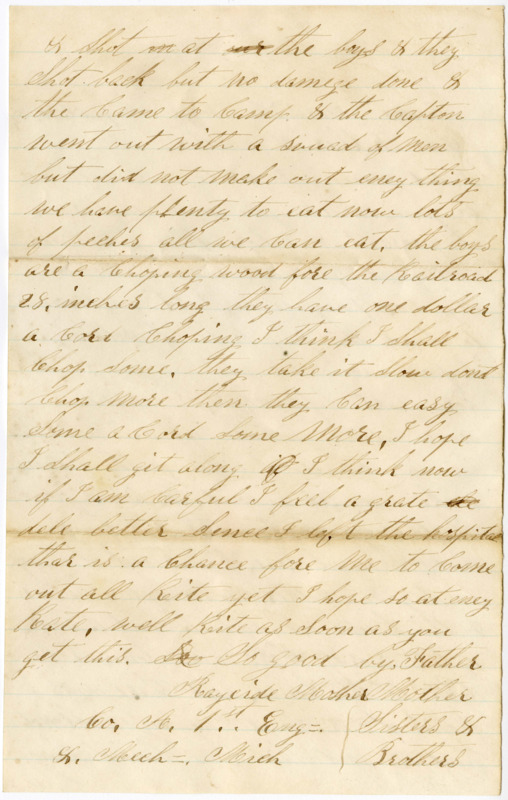 & shot in at the boys & they
shot back but no damege done &
the Came to Camp & the Capton
went out with a squad of men
but did not make out eney thing
we have plenty to eat now lots
of peeches all we Can eat. the boys
are a Choping wood fore the Railroad
28. inches long they have one dollar
a Cord Choping I think I shall
Chop some. they take it slow dont
Chop more then they Can easy
some a Cord some more, I hope
I shall git along if I think now
if I am Carful I feel a grate
dele better sence I left the hospital
thar is a Chance fore me to Come
out all Rite yet I hope so at eney
Rate, well Rite as soon as you
get this. So good by Father
Mother Mother
Co. A. 1st. Eng=. Sisters &
&. Mech=. Mich Brothers